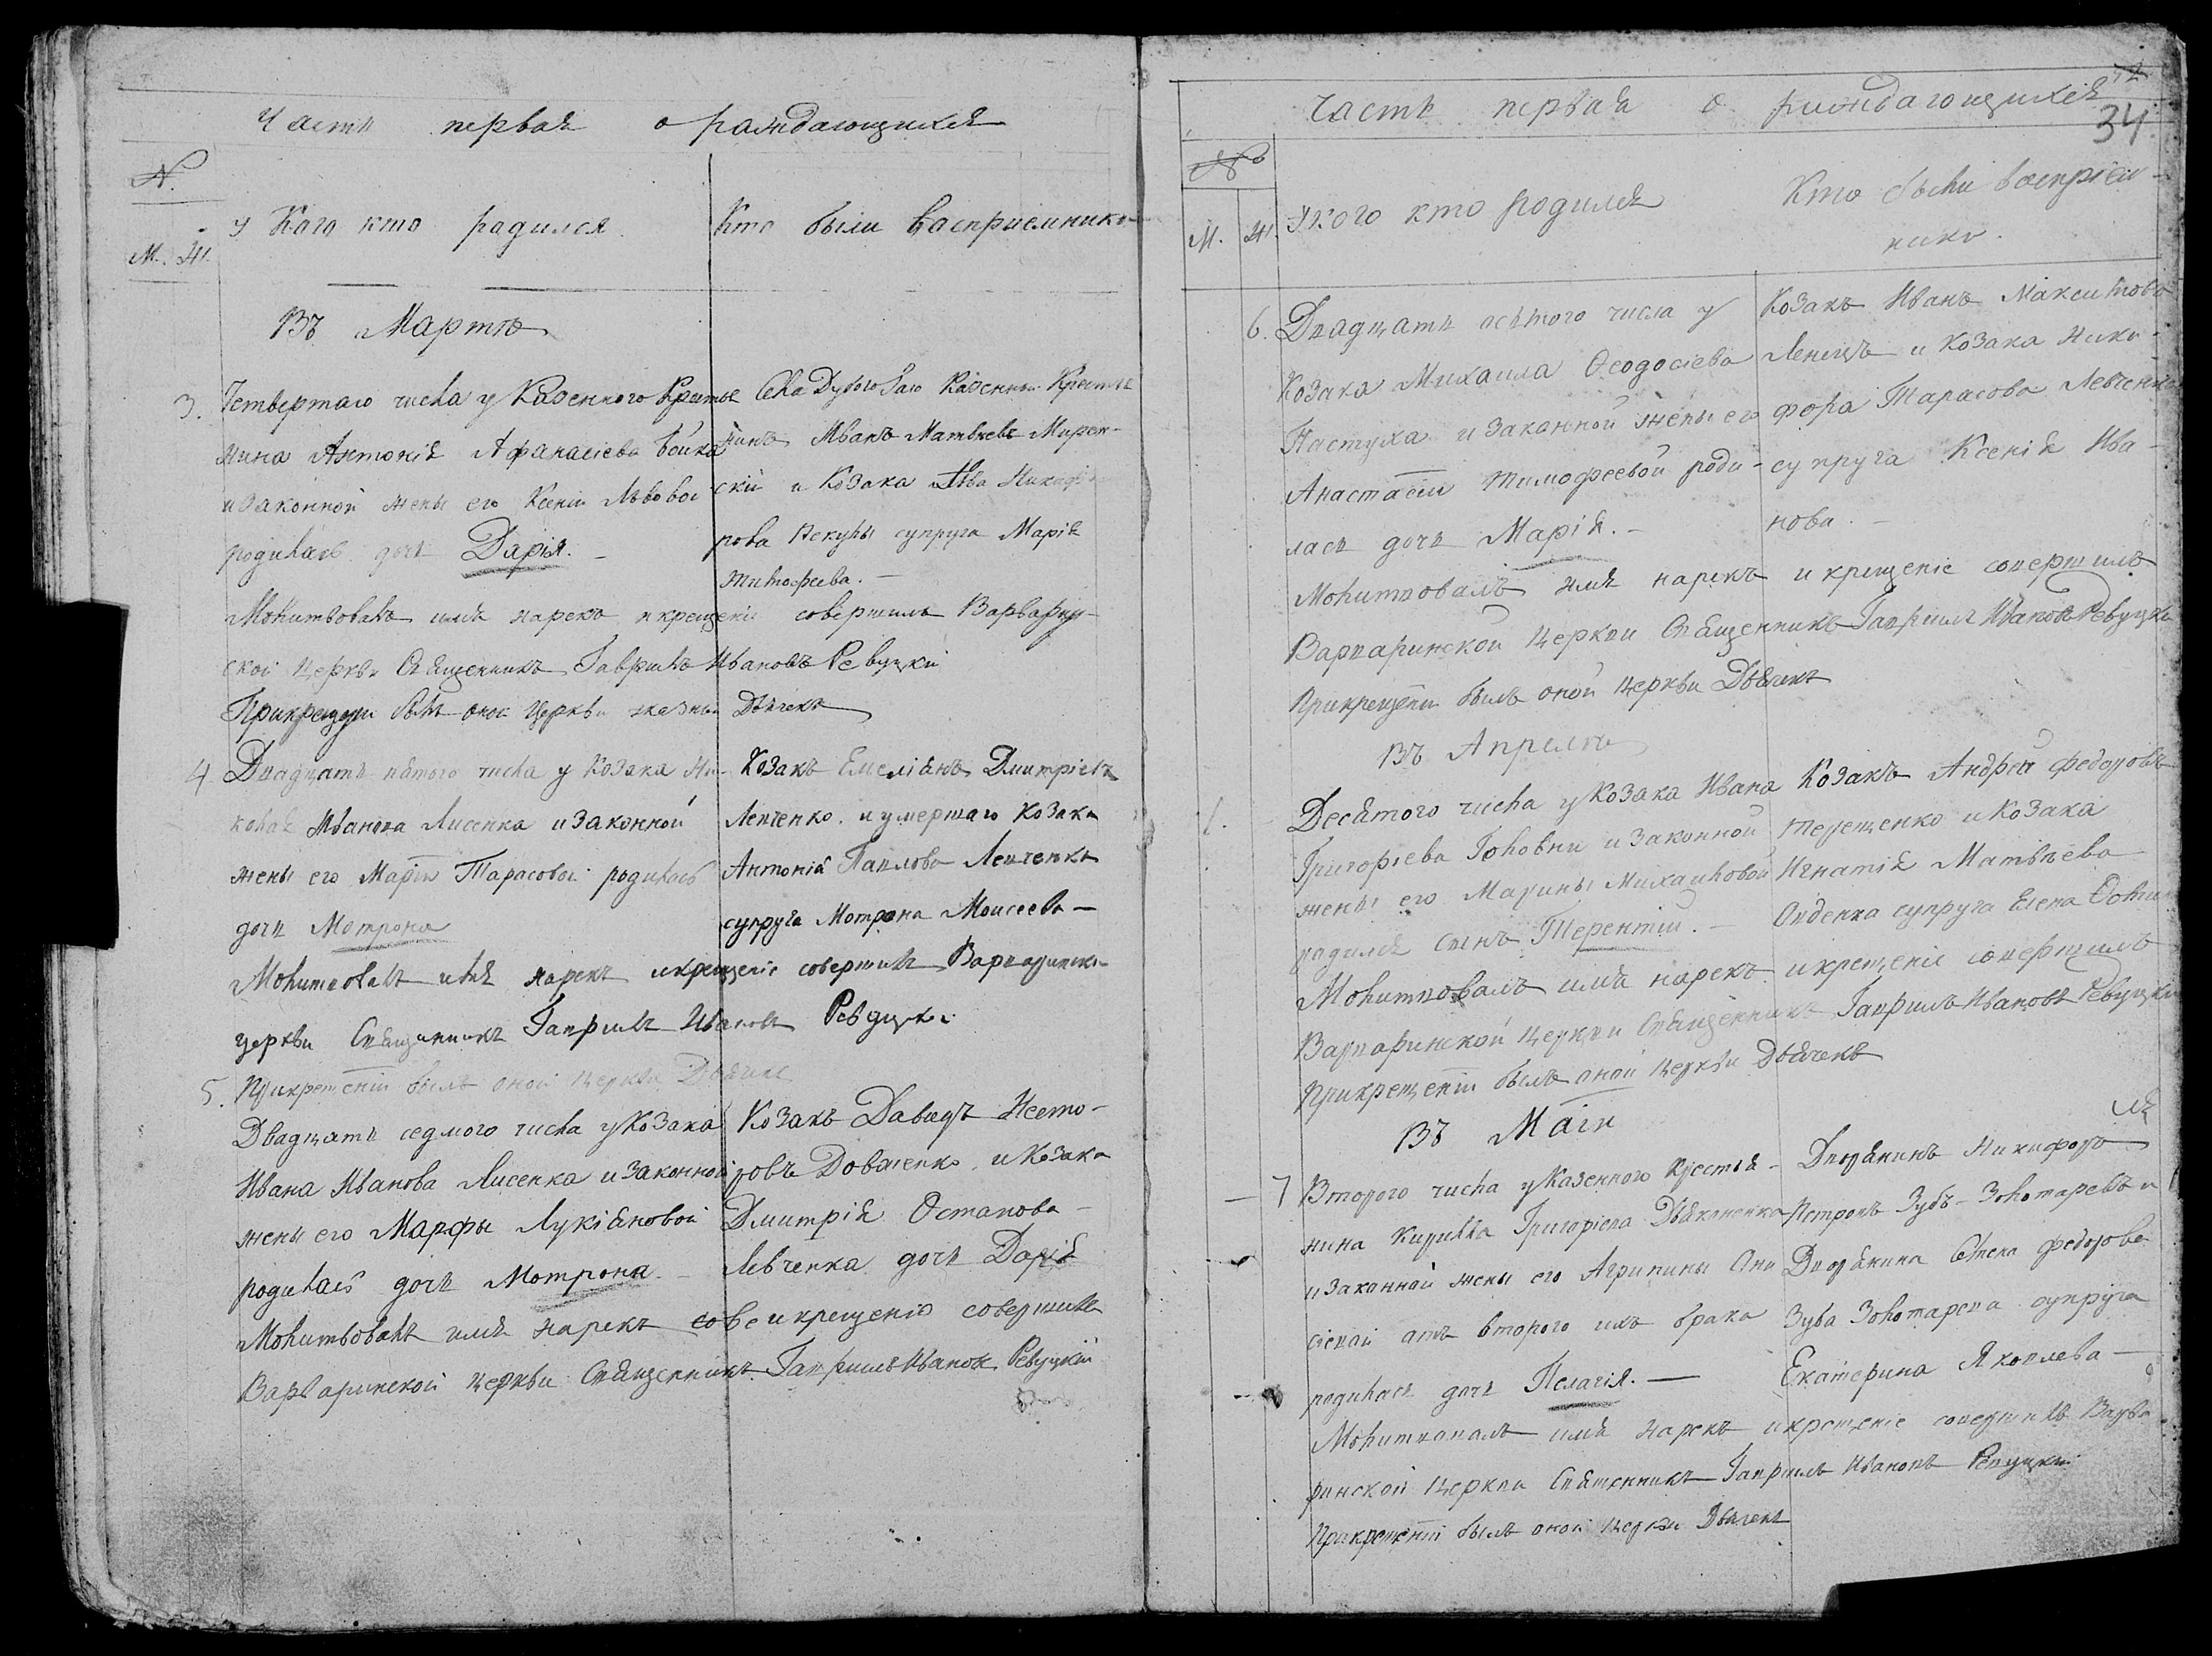 Часть первая о раждающихся
№
М. Ж.
У Кого кто радился
Кто были васприемники
Въ Мартѣ
3. Четвертаго числа у Казенного Крестья
нина Антонія Афанасіева Бойка
и законной жены его Ксеніи Львовой
родилась дочь Дарія. –
Села Дубового Казенный Крестья
нинъ Иванъ Матвѣевъ Мирон-
скій и Козака Лва Никифо
рова Пекулы супруга Марія
Тимофеева. –
Молитвовалъ имя нарекъ и крещеніе совершилъ Варварин-
ской церкви Священникъ Гавріилъ Ивановъ Ревуцкій
Прикрещеніи былъ оной церкви Дьячекъ
4 Двадцать пятого числа у Козака Ни-
колая Иванова Лисенка и законной
жены его Маріи Тарасовой родилась
дочь Мотрона
Козакъ Емеліянъ Дмитріевъ
Левченко и умершаго Козака
Антонія Павлова Левченка
супруга Мотрона Моисеева –
Молитвовалъ имя нарекъ и крещеніе совершилъ Варваринско
церкви Священникъ Гавріилъ Ивановъ Ревуцкі
Прикрещеніи былъ оной церкви Дьячекъ
5. Двадцать седмого числа у Козака
Ивана Иванова Лисенка и законной
жены его Марфы Лукіяновой
родилась дочь Мотрона –
Козакъ Давидъ Несто-
ровъ Довженко и Козака
Дмитрія Остапова –
Левченка дочь Дарія
Молитвовалъ имя нарекъ сове и крещеніе совершилъ
Варваринской церкви Священникъ Гавріилъ Ивановъ Ревуцкій
Часть первая о раждающихся
34
№
М. Ж.
У Кого кто родился
Кто были васпріем-
ники.
6. Двадцать осьмого числа у
Козака Михаила Феодосіева
Пастуха и законной жены его
Анастасіи Тимофеевой роди-
лась дочь Марія. –
Козакъ Иванъ Максимовъ
Ленецъ и Козака Ники-
фора Тарасова Левченка
супруга Ксенія Ива-
нова. –
Молитвовалъ имя нарекъ и крещеніе совершилъ
Варваринской церкви Священникъ Гавріилъ Ивановъ Ревуцкій
Прикрещеніи былъ оной церкви Дьячекъ
Въ Апрелѣ
1. Десятого числа у Козака Ивана
Григоріева Головни и законной
жены его Марины Михаиловой
радился сынъ Терентій. –
Козакъ Андрей Федоровъ
Терещенко и Козака
Игнатія Матвѣева
Овденка супруга Елена Фоми
Молитвовалъ имя нарекъ и крещеніе совершилъ
Варваринской церкви Священникъ Гавріилъ Ивановъ Ревуцкі
Прикрещеніи былъ оной церкви Дьячекъ
Въ Маіи
7 Второго числа у Казенного крестья-
нина Кирилла Григоріева Дьяконенка
и законной жены его Агрипины Они
сіевай атъ второго ихъ брака
родилась дочь Пелагія. –
Дворянинъ Никифоръ
Петровъ Зубъ-Золотаревъ и
Дворянина Федорова
Зуба Золотарева супруга
Екатерина Яковлева –
Молитвовалъ имя нарекъ и крещеніе совершилъ Варва
ринской церкви Священникъ Гавріилъ Ивановъ Ревуцкій
Прикрещеніи былъ оной церкви Дьячекъ